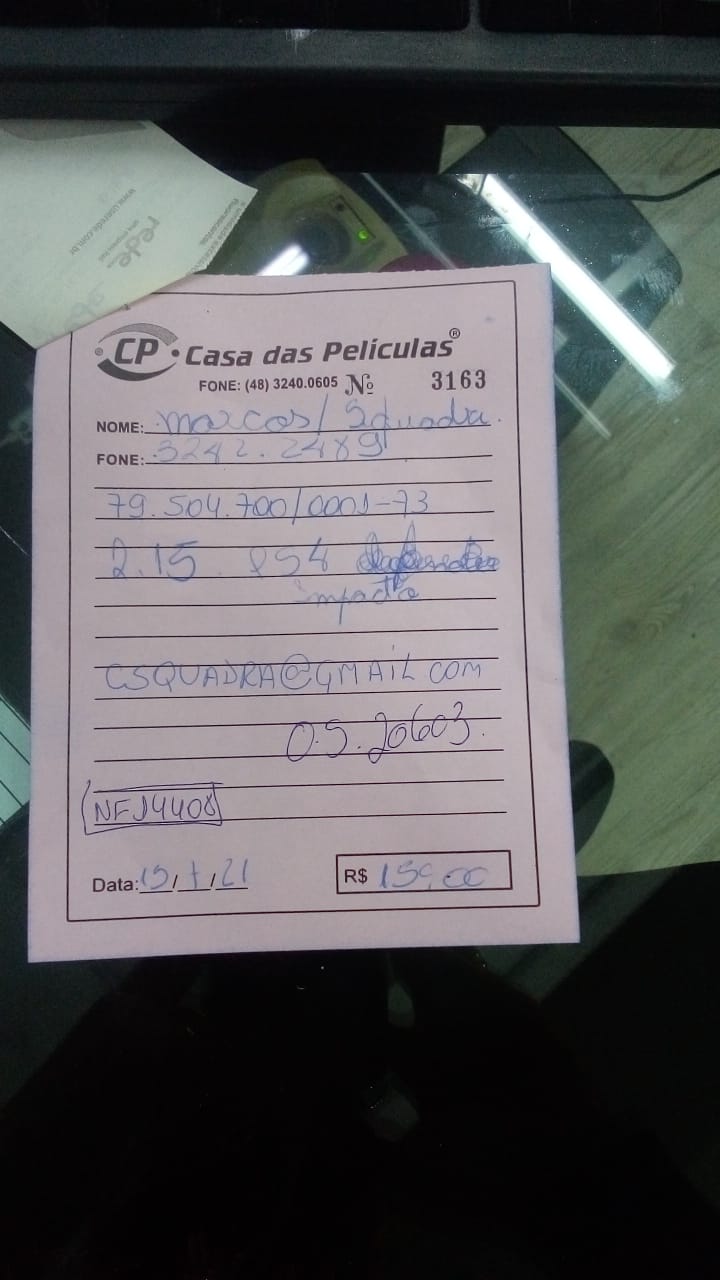 www.userede.com.br
rede
CP Casa das Películas®
FONE: (48) 3240.0605 Nº 3163
NOME: Marcos / Squadra.
FONE: 3242.2489
79.504.700/0001-73
2.15
impacto
CSQUADRA@GMAIL COM
O.S. 20603.
NFJ4408
Data: /21
R$ 159,00